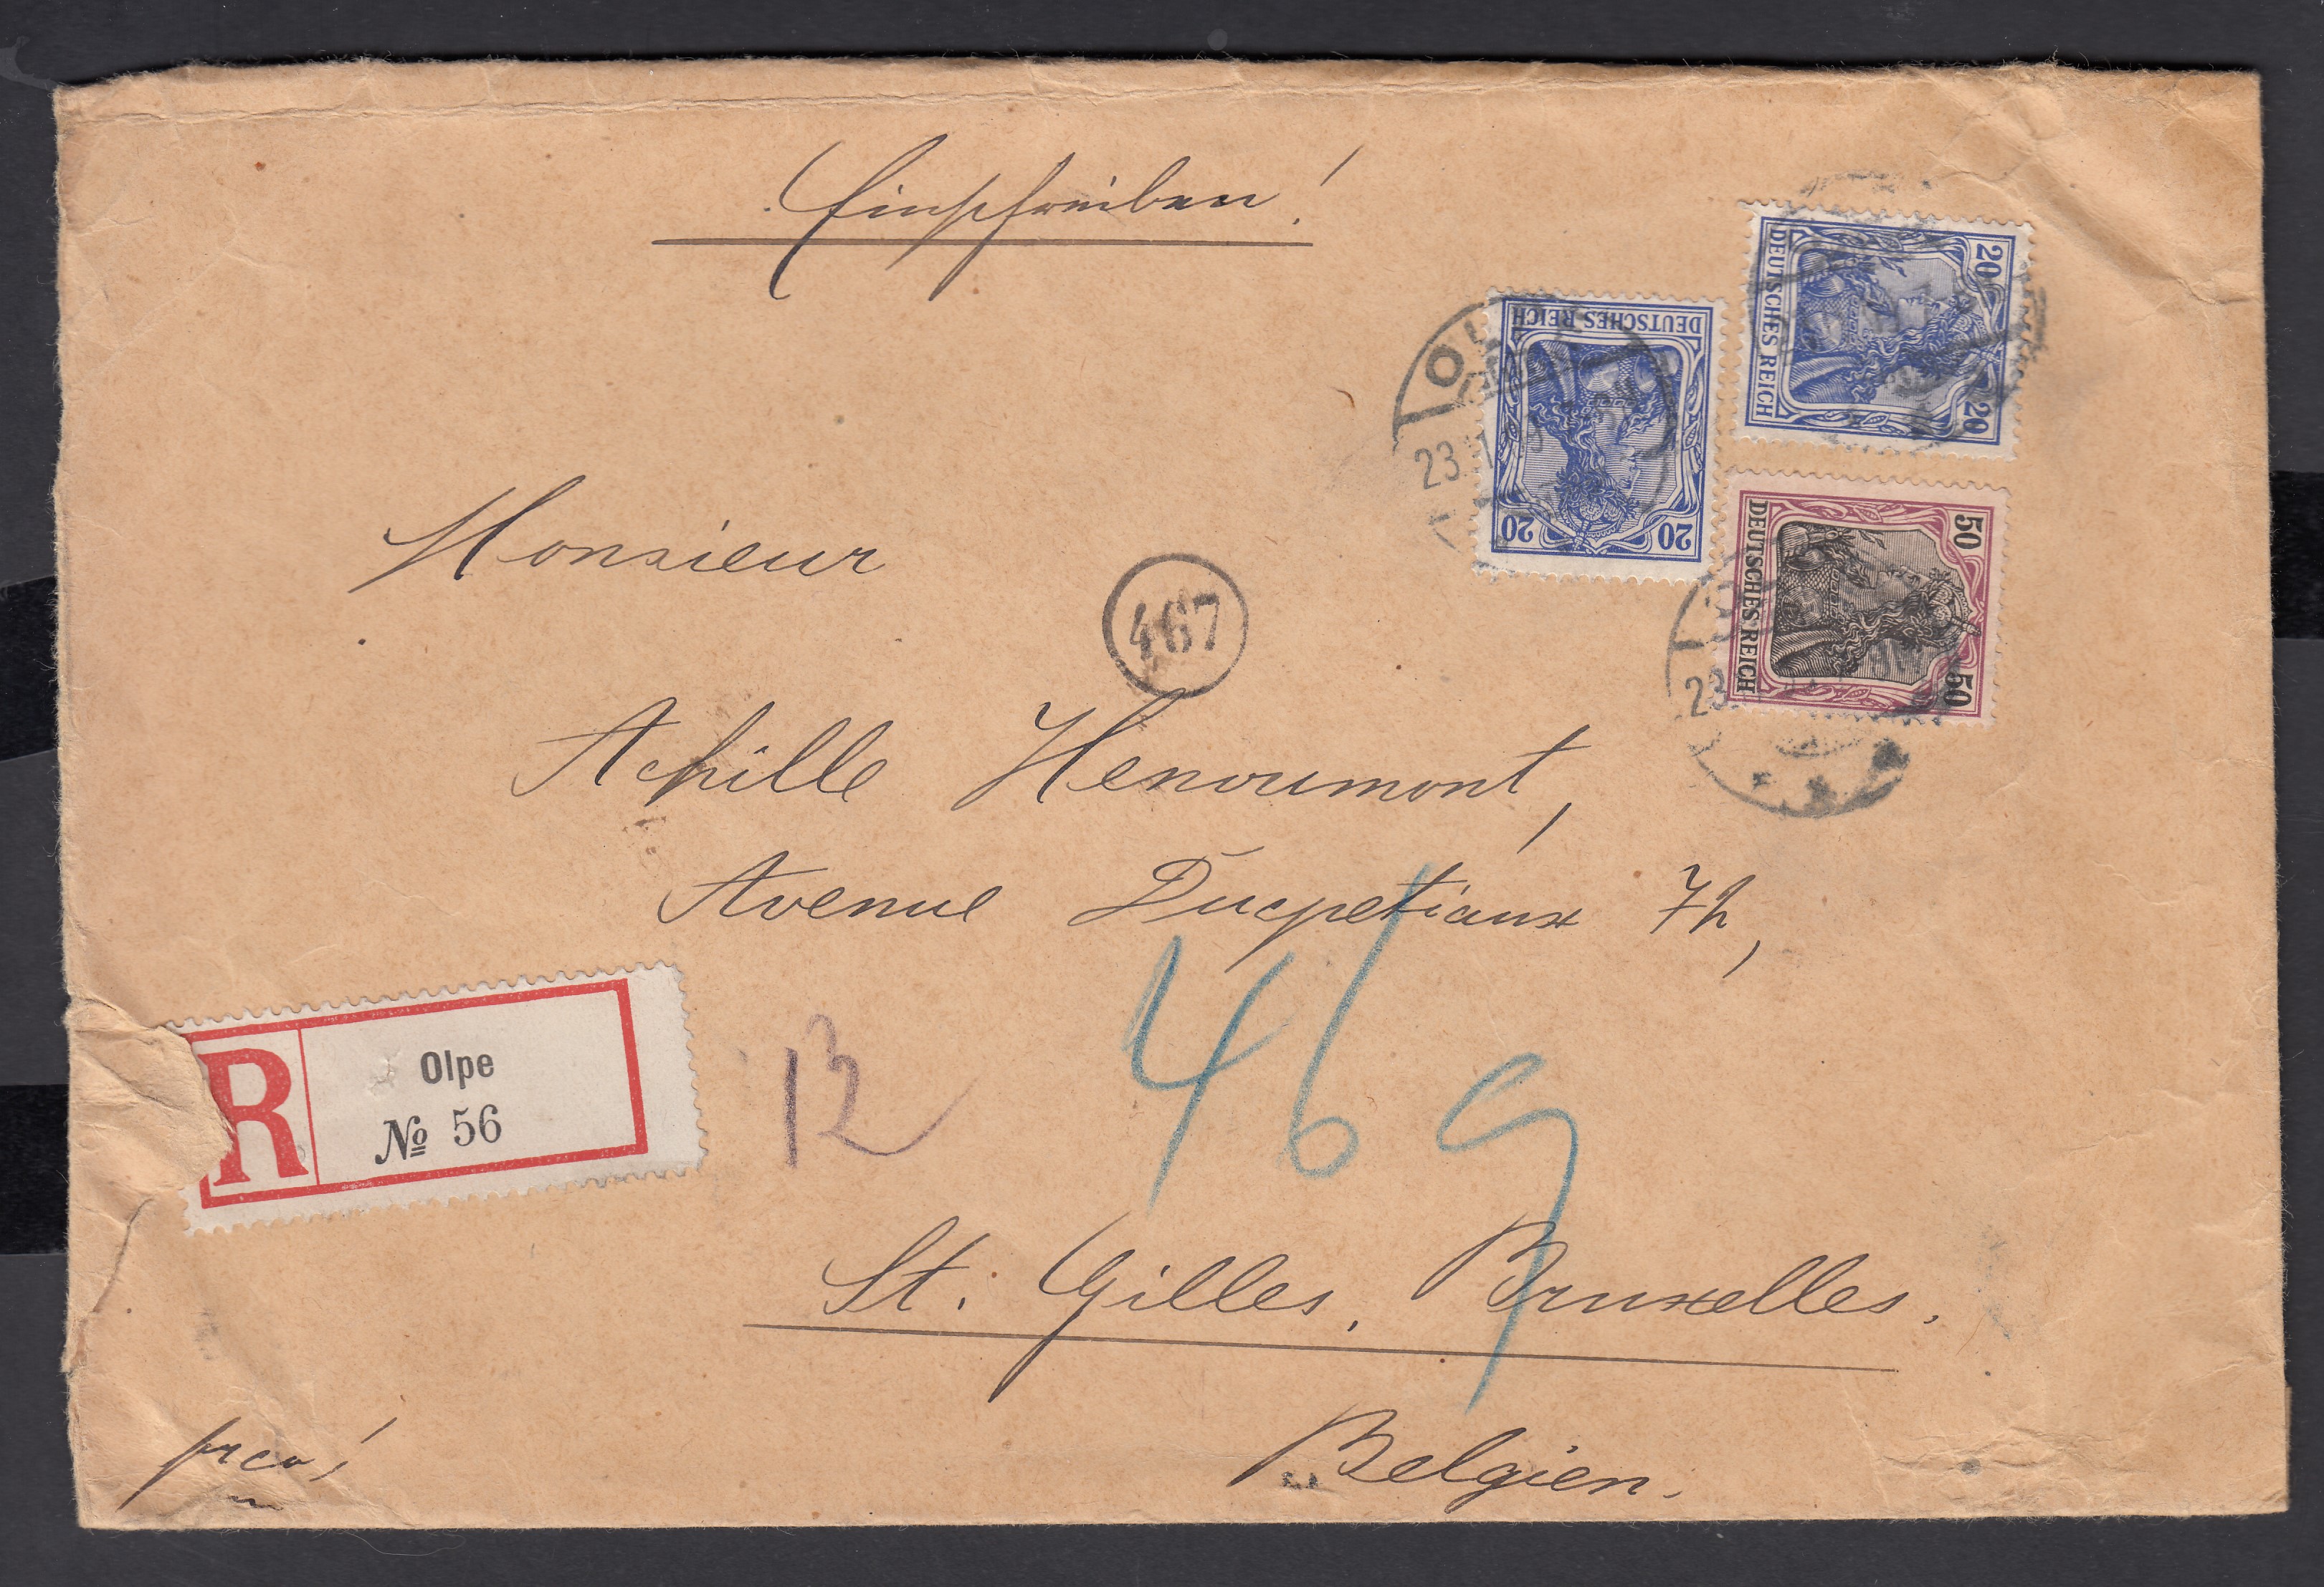 Einschreiben!
DEUTSCHES REICH
20 20
DEUTSCHES REICH
20 20
DEUTSCHES REICH
50 50
23.1
23
Monsieur
467
Achille Henoumont,
Avenue Ducpetiaux 7h,
R Olpe
№ 56
46g
St. Gilles, Bruxelles.
frco!
Belgien.